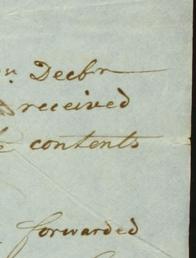 Decbr
received
contents
forwarded